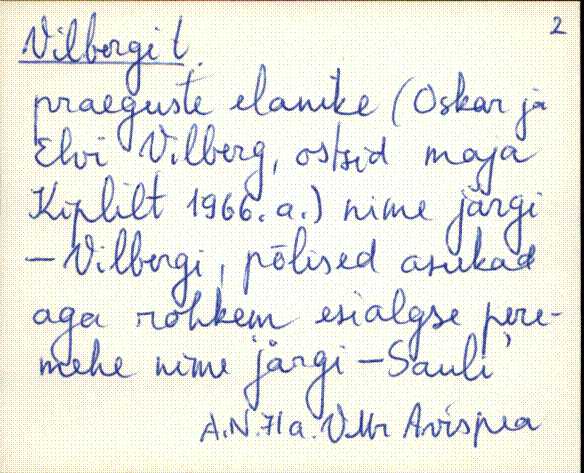 2
Vilbergi t.
praeguste elanike (Oskar ja
Elvi Vilberg, ostsid maja
Kiplilt 1966. a.) nime järgi
– Vilbergi, põlised asukad
aga rohkem esialgse pere-
mehe nime järgi – Sauli'
A.N. 71a. VMr Avispea